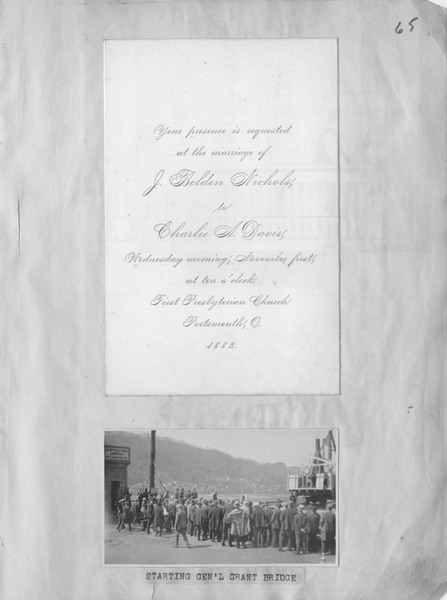 65
Your presence is requested
at the marriage of
J. Belden Nichols,
to
Charlie A. Davis,
Wednesday morning, November first,
at ten o'clock.
First Presbyterian Church
Portsmouth, O.
1882.
STARTING GEN'L GRANT BRIDGE